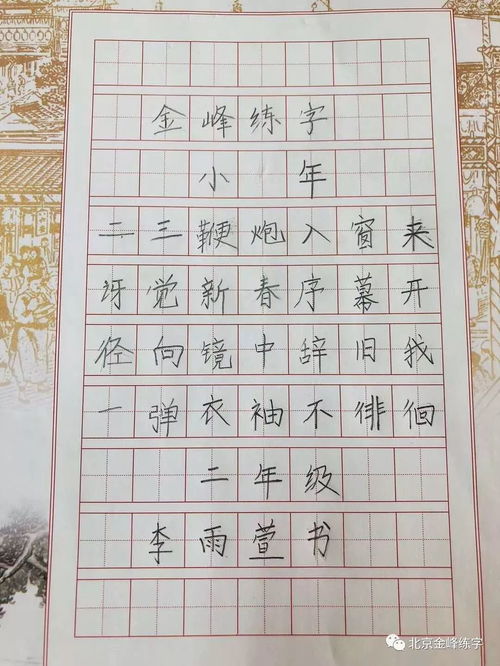 金峰练字
小年
二三鞭炮入窗来
讶觉新春序幕开
径向镜中辞旧我
一弹衣袖不徘徊
二年级
李雨萱书
北京金峰练字